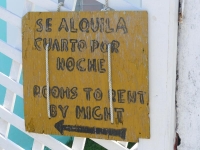 SE ALQUILA
CUARTO POR
NOCHE
ROOMS TO RENT
BY NIGHT